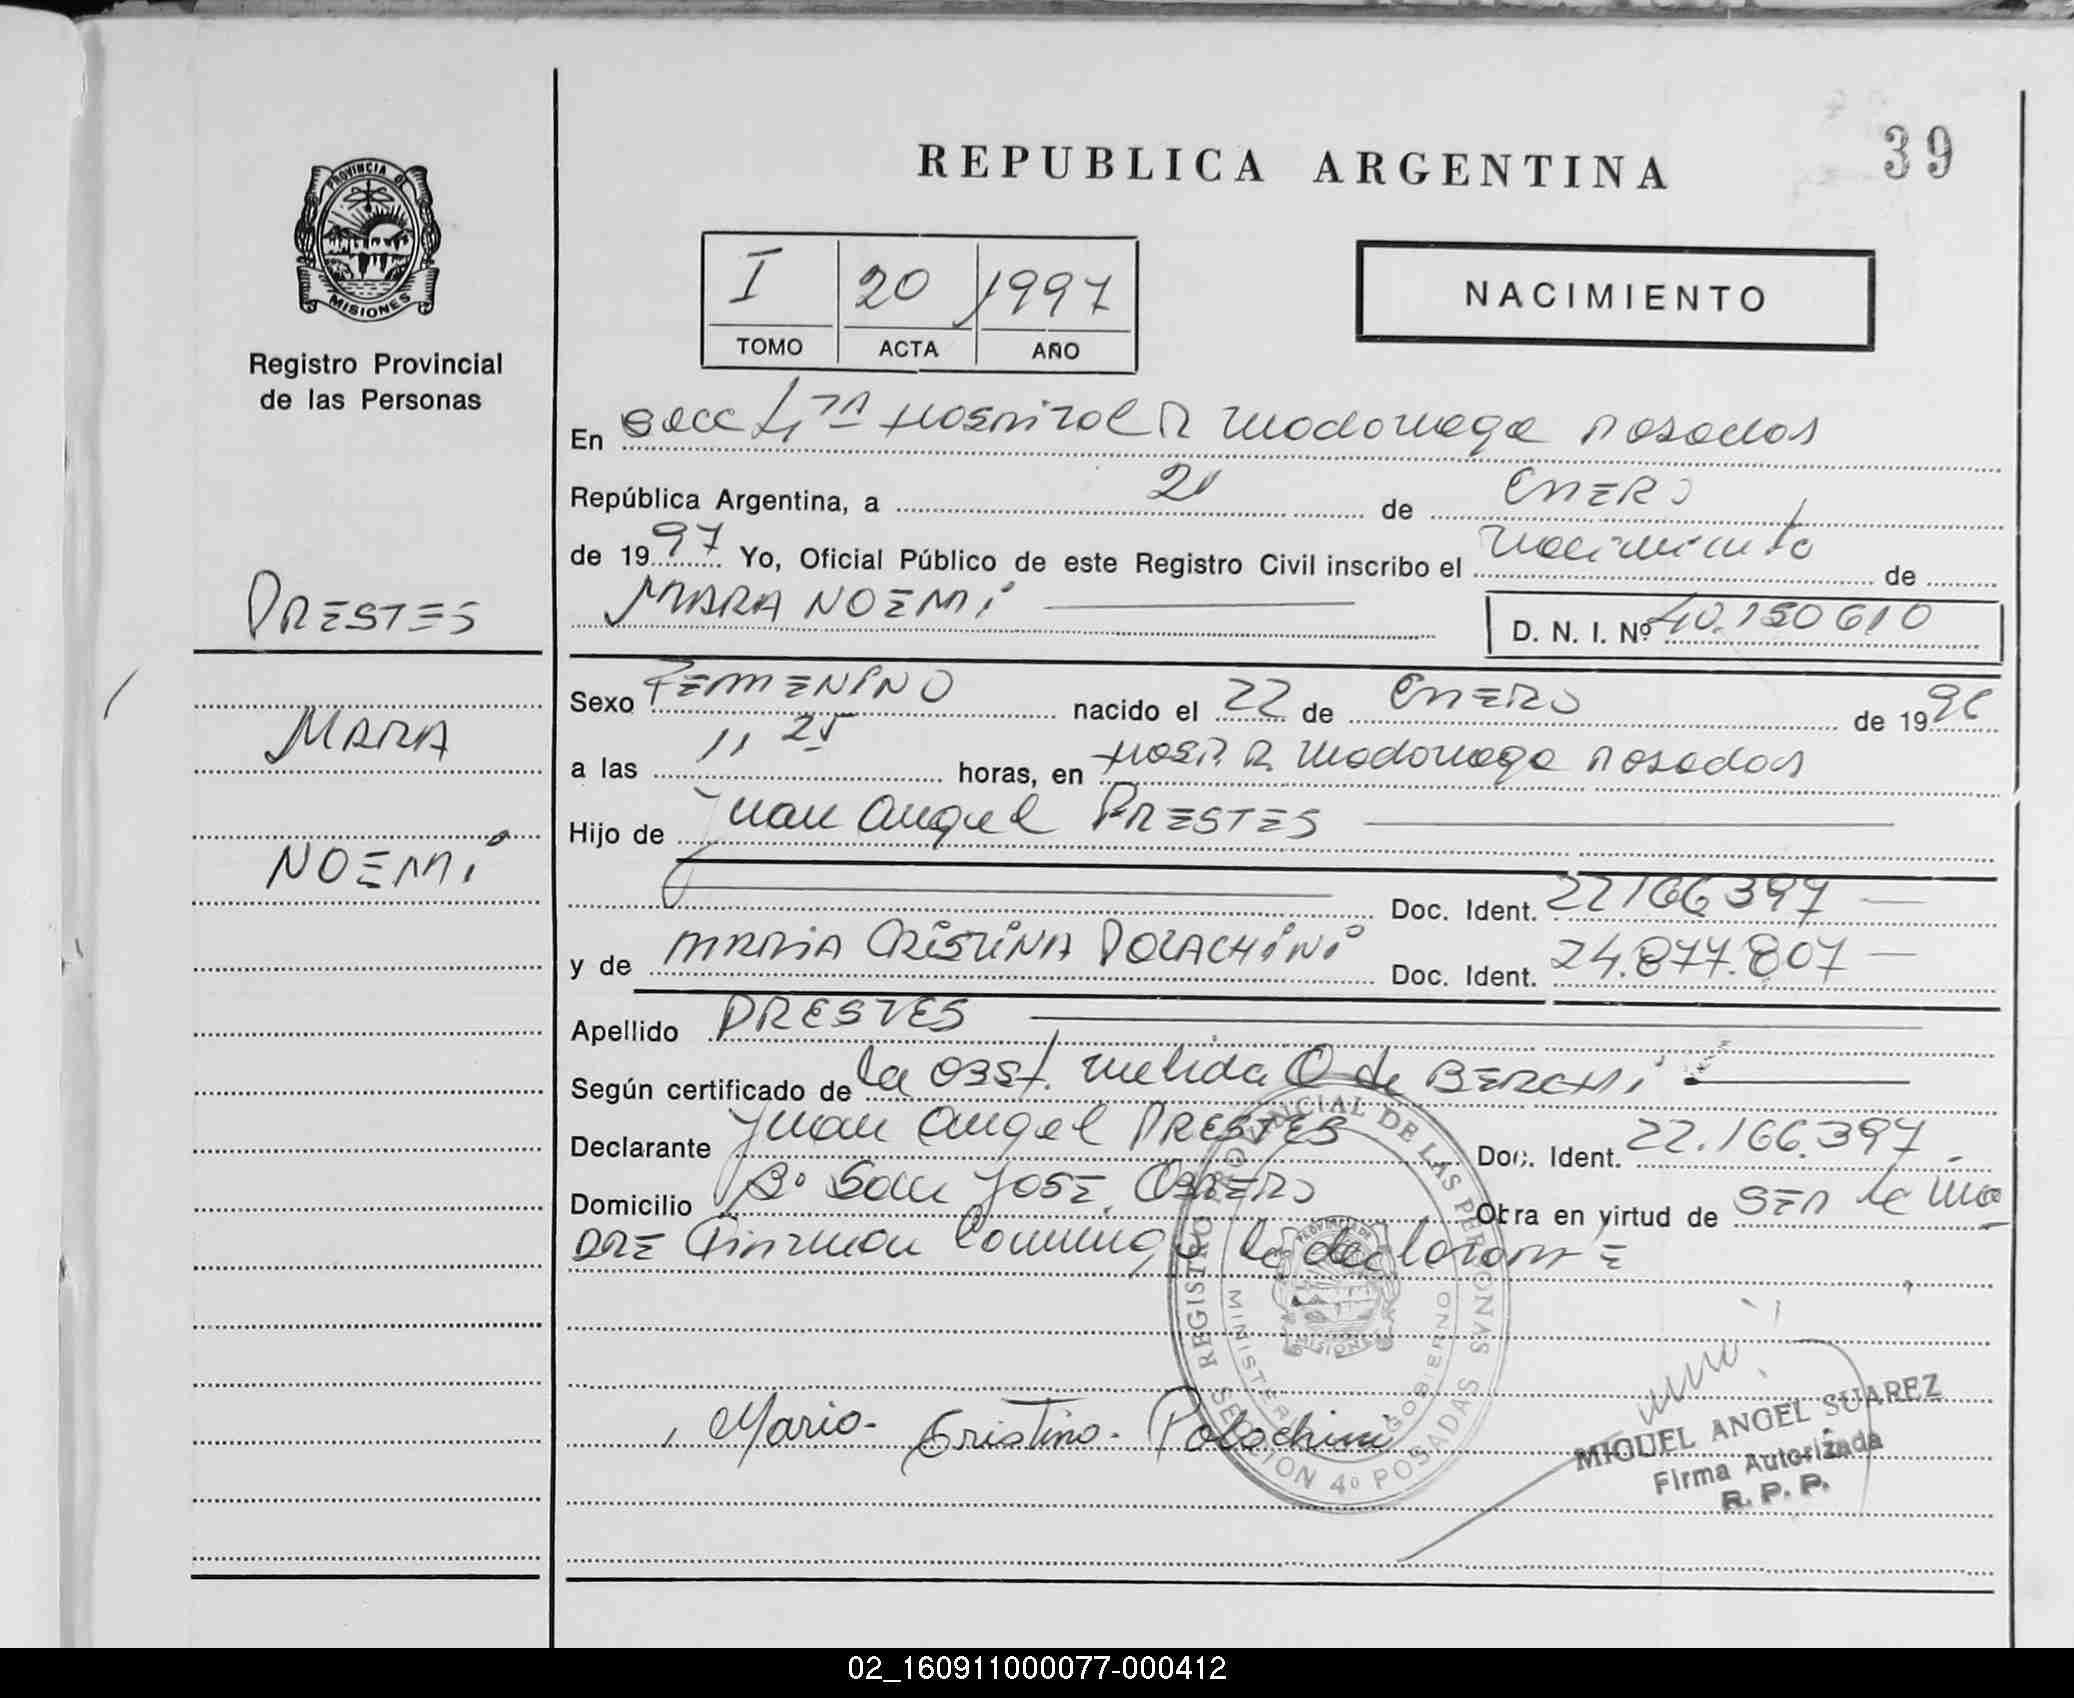 39
REPUBLICA ARGENTINA
PROVINCIA DE
MISIONES
Registro Provincial
de las Personas
I 20 1997
TOMO ACTA AÑO
NACIMIENTO
En Secc 4ta Hospital R Madariaga Posadas
República Argentina, a 21 de ENERO
de 1997 Yo, Oficial Público de este Registro Civil inscribo el nacimiento de
MARA NOEMi D. N. I. Nº 40.150610
PRESTES
MARA
NOEMí
Sexo FEMENINO nacido el 22 de ENERO de 1996
a las 11 25 horas, en HOSP. R. Madariaga Posadas
Hijo de Juan Angel PRESTES
Doc. Ident. 22166397
y de MARIA CRISTINA POLACHINI Doc. Ident. 24.877.807
Apellido PRESTES
Según certificado de la OBST. Melida O de BERCHI
Declarante Juan Angel PRESTES Doc. Ident. 22.166.397
Domicilio Bº San JOSE OBRERO Obra en virtud de SER la MA
DRE la declarante
REGISTRO PROVINCIAL DE LAS PERSONAS
MINISTERIO GOBIERNO
PROVINCIA DE
MISIONES
SECCION 4º POSADAS
Maria Cristina Polachini
MIGUEL ANGEL SUAREZ
Firma Autorizada
R. P. P.
02_160911000077-000412